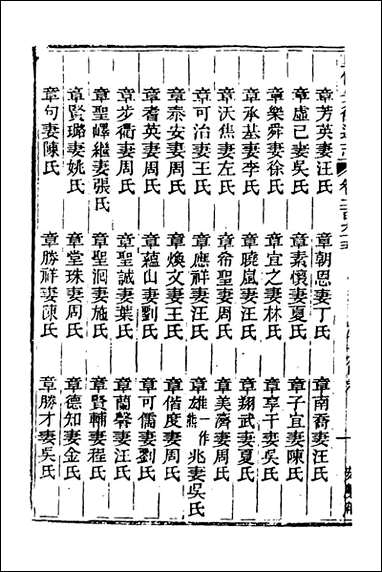 章芳英妻汪氏　章朝恩妻丁氏　章南裔妻汪氏
章虛己妻吳氏　章素懷妻夏氏　章子宜妻陳氏
章樂舜妻徐氏　章宜之妻林氏　章享干妻吳氏
章承基妻李氏　章曉嵐妻汪氏　章翔武妻夏氏
章沃焦妻左氏　章希聖妻周氏　章美濟妻周氏
章可治妻王氏　章應祥妻汪氏　章雄一作熊兆妻吳氏
章泰安妻周氏　章煥文妻王氏　章偕度妻周氏
章耆英妻周氏　章蘊山妻劉氏　章可儒妻劉氏
章步衢妻周氏　章聖誠妻葉氏　章蘭馨妻汪氏
章聖嶧繼妻張氏　章聖洄妻施氏　章賢輔妻程氏
章賢璐妻姚氏　章堂珠妻周氏　章德知妻金氏
章句妻陳氏　章勝祥妻陳氏　章勝才妻吳氏